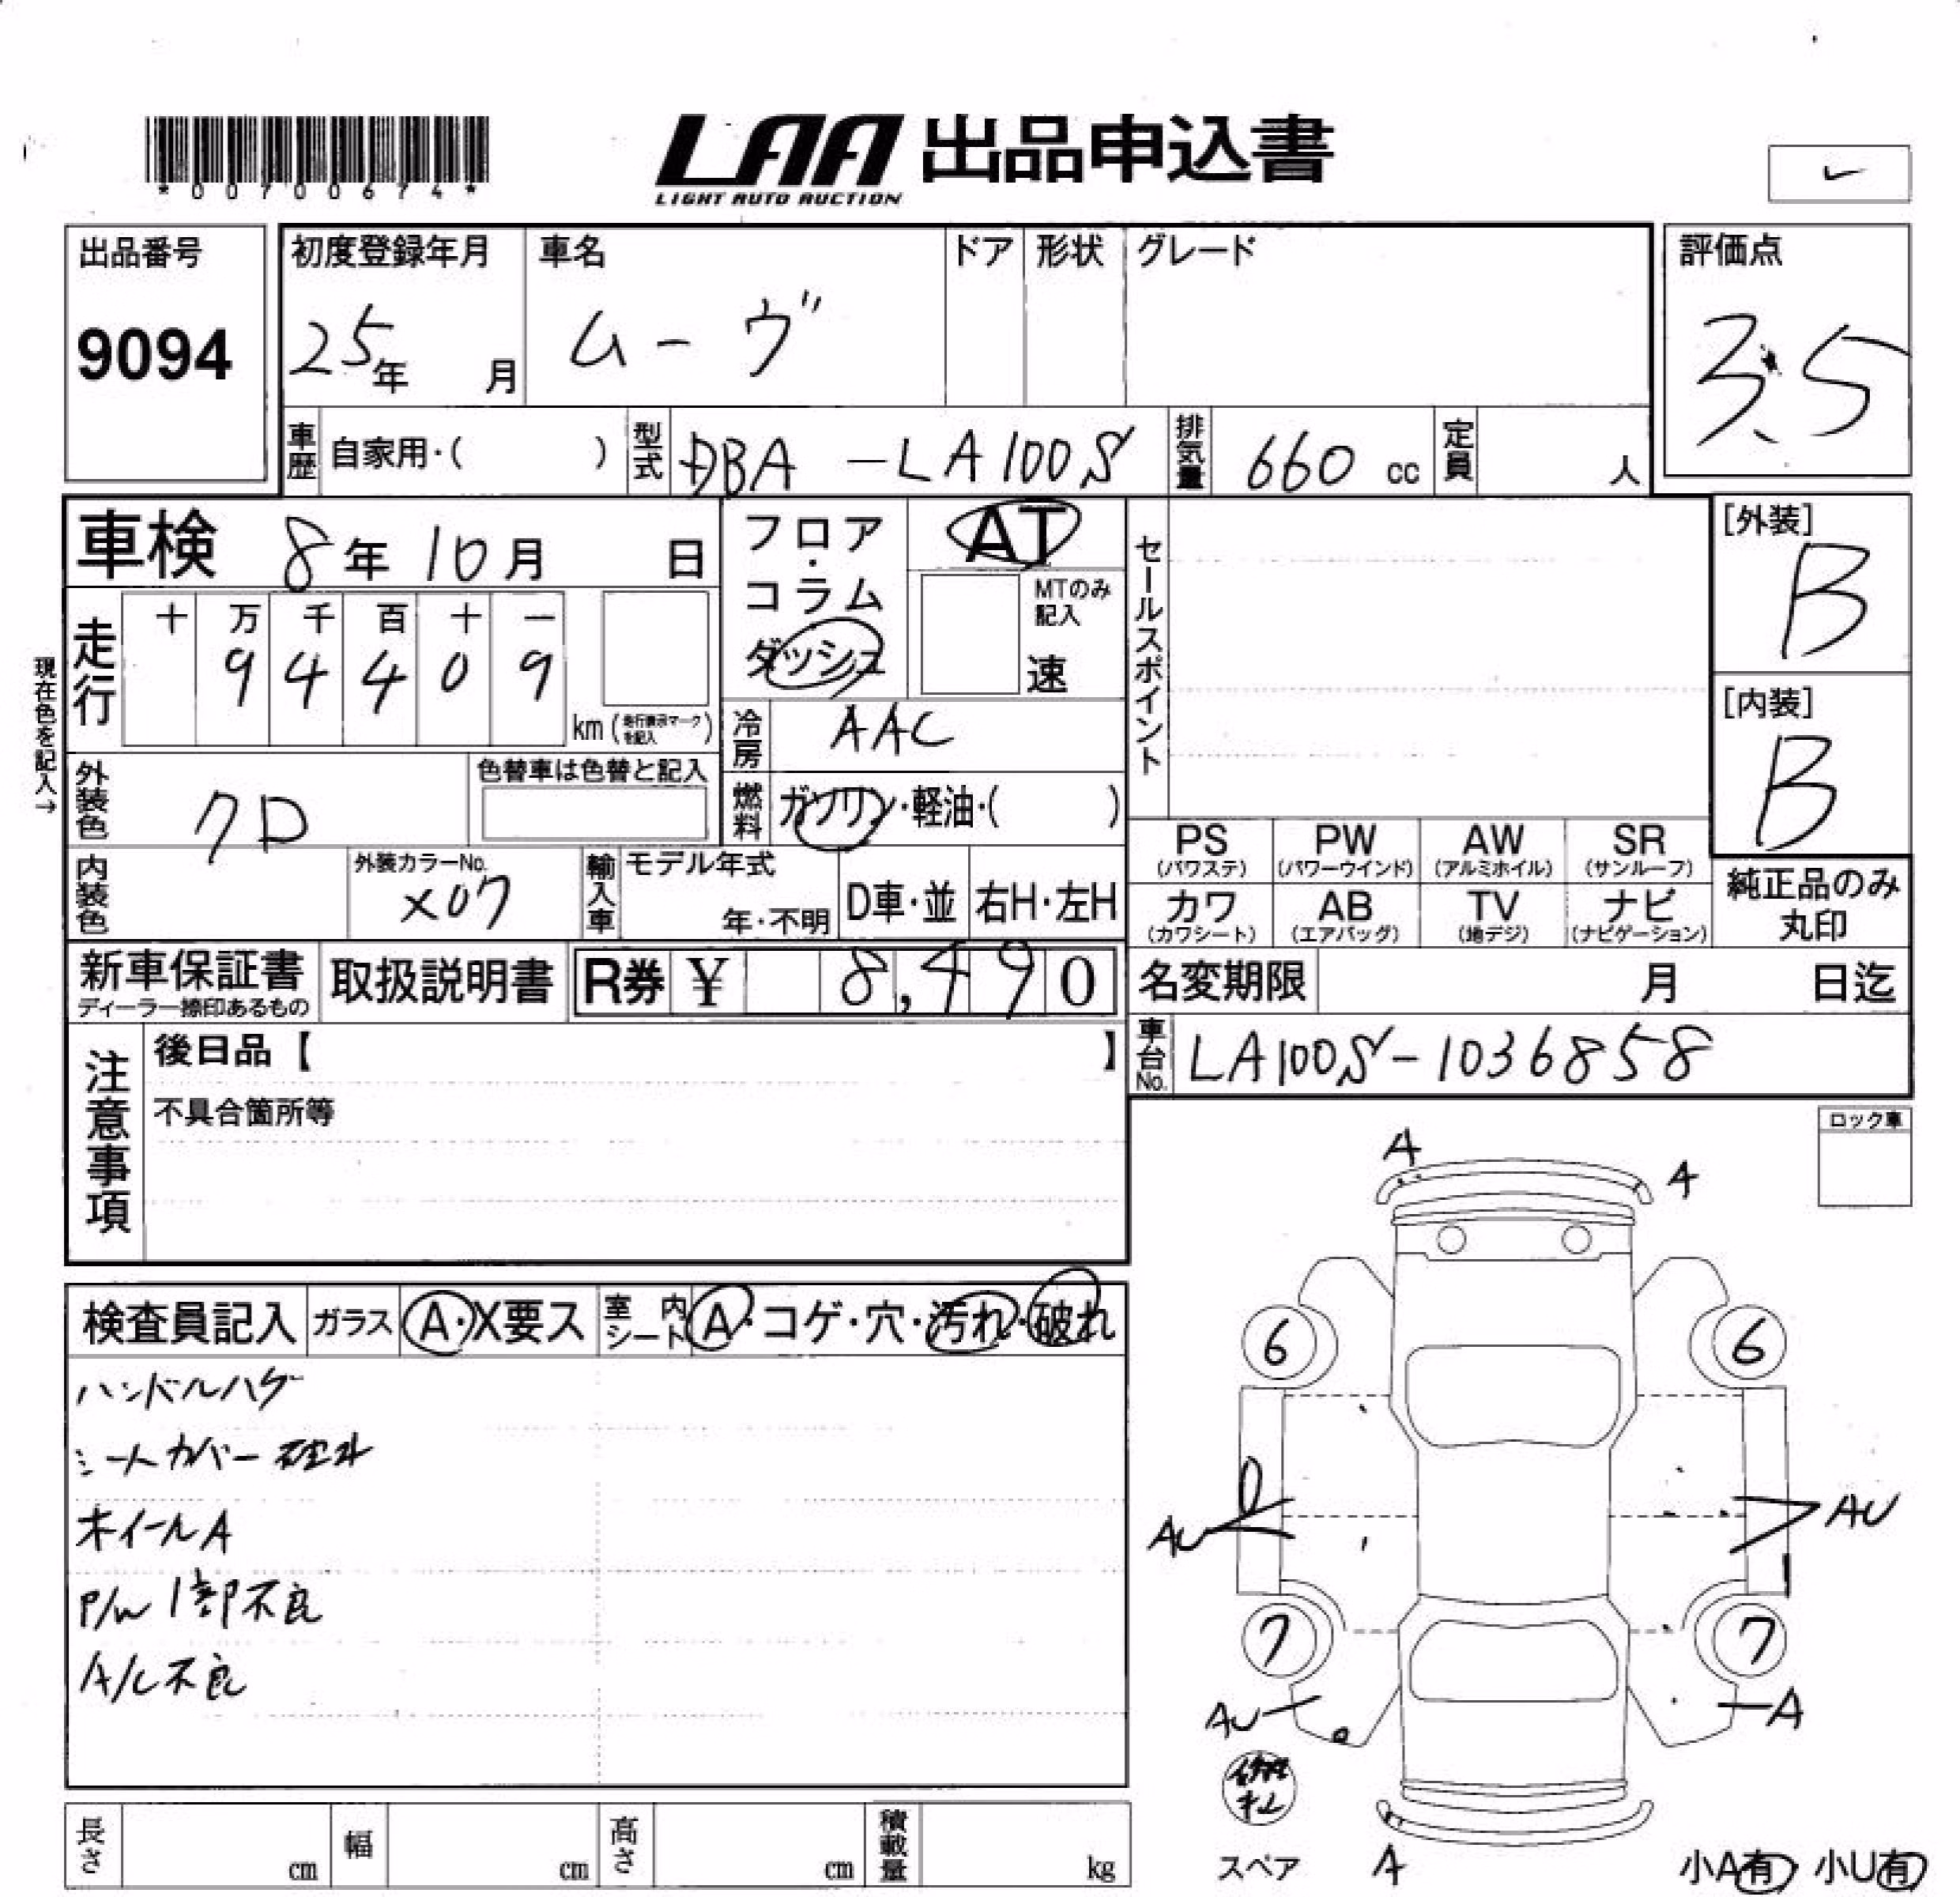 *00700674*
LAA 出品申込書
LIGHT AUTO AUCTION
出品番号
9094
初度登録年月
25年 月
車名
ムーヴ
ドア
形状
グレード
評価点
3.5
車歴
自家用・( )
型式
DBA-LA100S
排気量
660 cc
定員
人
車検 8年 10月 日
フロア・コラム
ダッシュ
AT
MTのみ記入
速
セールスポイント
[外装]
B
[内装]
B
現在色を記入→
走行
十 万 千 百 十 一
9 4 4 0 9
km (走行表示マークを記入)
冷房
AAC
外装色
クロ
色替車は色替と記入
燃料
ガソリン・軽油・( )
内装色
外装カラーNo.
X07
輸入車
モデル年式
年・不明
D車・並
右H・左H
PS (パワステ)
PW (パワーウインド)
AW (アルミホイル)
SR (サンルーフ)
カワ (カワシート)
AB (エアバッグ)
TV (地デジ)
ナビ (ナビゲーション)
純正品のみ丸印
新車保証書
ディーラー捺印あるもの
取扱説明書
R券 ¥ 8,490
名変期限 月 日迄
車台No.
LA100S-1036858
注意事項
後日品【 】
不具合箇所等
ロック車
検査員記入
ガラス
A・X要ス
室内シート
A・コゲ・穴・汚れ・破れ
ハンドルハゲ
シートカバー
ホイールA
P/W 1部不良
A/C不良
A
A
6
6
AU
AU
7
7
AU
A
スペア
A
小A有 小U有
長さ cm
幅 cm
高さ cm
積載量 kg